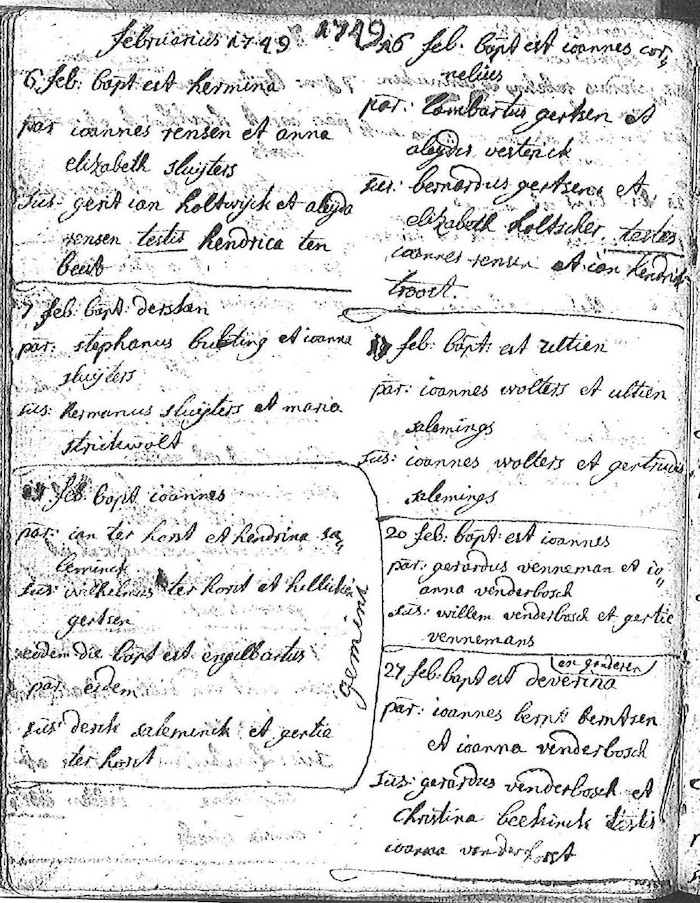 1749
februarius 1749
6 feb: bapt est hermina
par ioannes rensen et anna
elizabeth sluijters
sus: gerit ian holtwijck et aleijda
rensen testis hendrica ten
7 feb: bapt: dersken
par: stephanus bulting et ioanna
sluijters
sus: hermanus sluijters et maria
strickwolt
feb: bapt ioannes
par: ian ter horst et hendrina sa„
leminck
sus: wilhelmus ter horst et hilleken
gertsen
eodem die bapt est engelbartus
par: eidem
sus: derck saleminck et gertie
ter horst
gemini
16 feb: bapt est ioannes cor„
nelius
par: lambartus gertsen et
aleijdis
sus: bernardus gertsen et
elizabeth holtscher testes
ioannes rensen et ian hendrik
troost.
feb: bapt: est ultien
par: ioannes wolters et ultien
salemings
sus: ioannes wolters et gertrudis
salemings
20 feb: bapt: est ioannes
par: gerardus venneman et io„
anna venderbosch
sus: willem venderbosch et gertie
vennemans
en gonderen
27 feb: bapt est deverina
par: ioannes bernt berntsen
et ioanna venderbosch
sus: gerardus venderbosch et
christina beekinck testis
ioanna van der horst